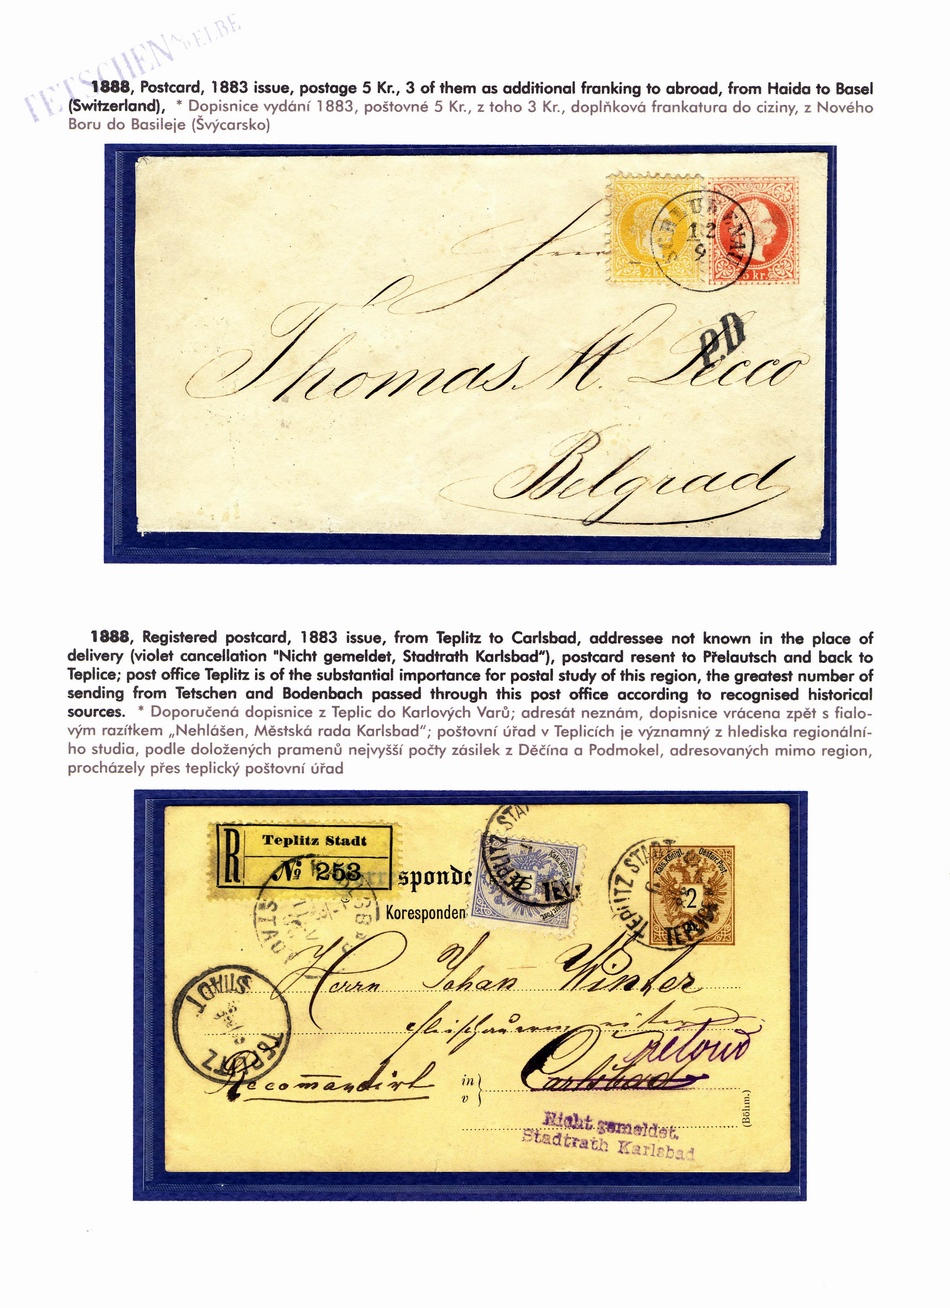 TETSCHEN A/D ELBE
1888, Postcard, 1883 issue, postage 5 Kr., 3 of them as additional franking to abroad, from Haida to Basel
(Switzerland), * Dopisnice vydání 1883, poštovné 5 Kr., z toho 3 Kr., doplňková frankatura do ciziny, z Nového
Boru do Basileje (Švýcarsko)
SCHLUKENAU
12
9
2 kr.
5 kr.
P.D
Thomas M. Lecco
Belgrad
1888, Registered postcard, 1883 issue, from Teplitz to Carlsbad, addressee not known in the place of
delivery (violet cancellation "Nicht gemeldet, Stadtrath Karlsbad"), postcard resent to Přelautsch and back to
Teplice; post office Teplitz is of the substantial importance for postal study of this region, the greatest number of
sending from Tetschen and Bodenbach passed through this post office according to recognised historical
sources. * Doporučená dopisnice z Teplic do Karlových Varů; adresát neznám, dopisnice vrácena zpět s fialo-
vým razítkem „Nehlášen, Městská rada Karlsbad“; poštovní úřad v Teplicích je významný z hlediska regionální-
ho studia, podle doložených pramenů nejvyšší počty zásilek z Děčína a Podmokel, adresovaných mimo region,
procházely přes teplický poštovní úřad
R
Teplitz Stadt
№ 253
sponde
Koresponden
TEPLITZ STADT
10
TEPLITZ STADT
2
TEPLICE
Herrn Johan Winter
TEPLITZ STADT
retour
Recommandirt
in
v
Carlsbad
(Böhm.)
Nicht gemeldet.
Stadtrath Karlsbad